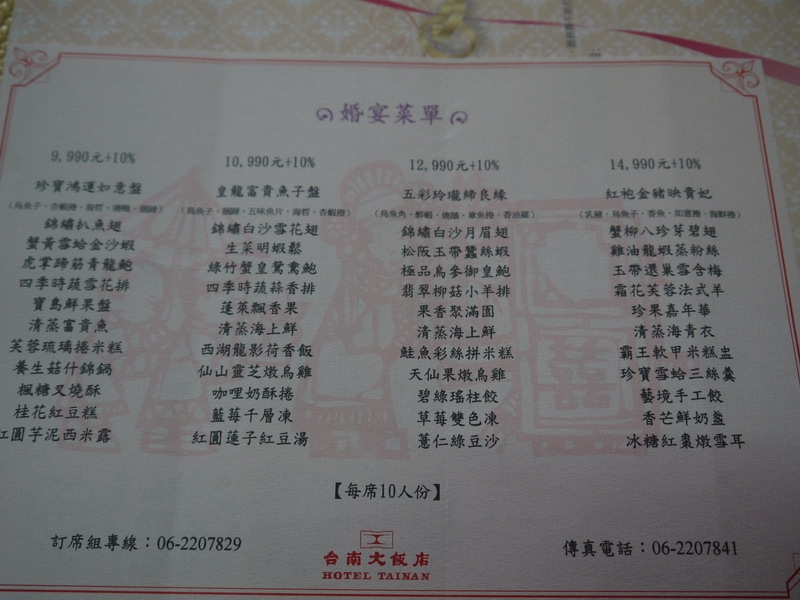 婚宴菜單
9,990元+10%
珍寶鴻運如意盤
錦繡扒魚翅
蟹黃雪蛤金沙蝦
虎掌蹄筋青龍鮑
四季時蔬雪花排
寶島鮮果盤
清蒸富貴魚
芙蓉琉璃捲米糕
養生菇什錦鍋
楓糖叉燒酥
桂花紅豆糕
紅圓芋泥西米露
10,990元+10%
皇龍富貴魚子盤
錦繡白沙雪花翅
生菜明蝦鬆
綠竹蟹皇鴛鴦鮑
四季時蔬蒜香排
蓬萊飄香果
清蒸海上鮮
西湖龍影荷香飯
仙山靈芝燉烏雞
咖哩奶酥捲
藍莓千層凍
紅圓蓮子紅豆湯
12,990元+10%
五彩玲瓏締良緣
錦繡白沙月眉翅
松阪玉帶蠶絲蝦
極品烏參御皇鮑
翡翠柳菇小羊排
果香聚滿園
清蒸海上鮮
鮭魚彩絲拼米糕
天仙果燉烏雞
碧綠瑤柱餃
草莓雙色凍
薏仁綠豆沙
14,990元+10%
紅袍金豬映貴妃
(乳豬、烏魚子、香魚、如意捲、海鮮捲)
蟹柳八珍芽碧翅
雞油龍蝦蒸粉絲
玉帶還巢雪含梅
霜花芙蓉法式羊
珍果嘉年華
清蒸海青衣
霸王軟甲米糕盅
珍寶雪蛤三絲羹
藝境手工餃
香芒鮮奶盞
冰糖紅棗燉雪耳
【每席10人份】
訂席組專線：06-2207829
台南大飯店
HOTEL TAINAN
傳真電話：06-2207841